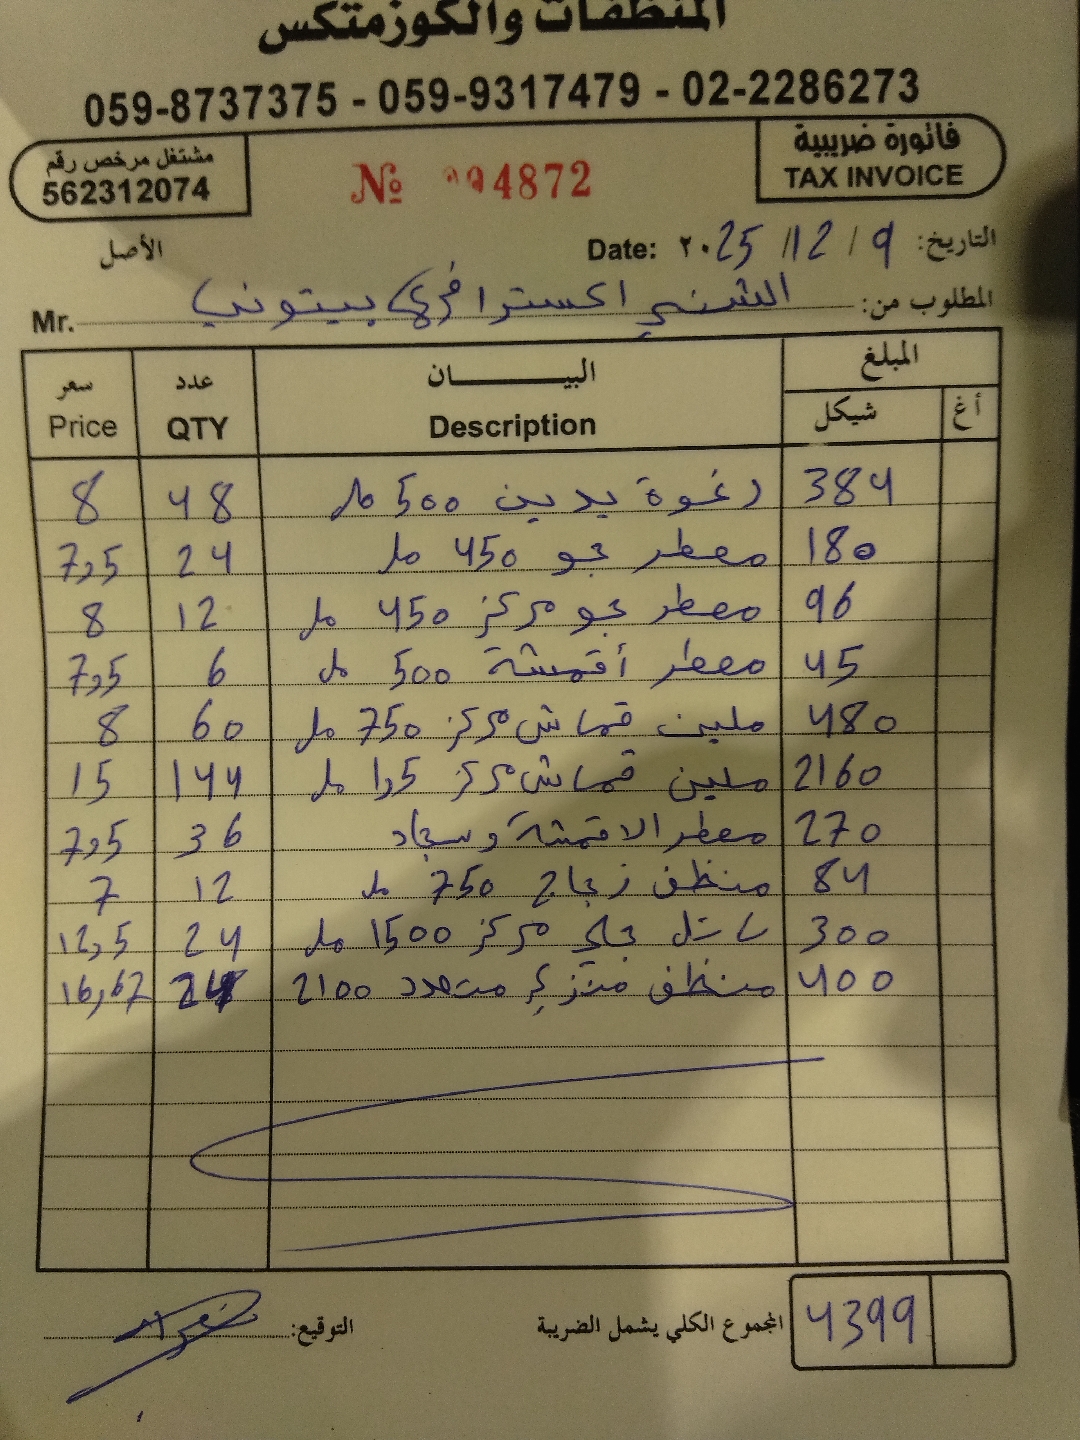 المنظفات والكوزمتكس
059-8737375 - 059-9317479 - 02-2286273
فاتورة ضريبية
TAX INVOICE
№ 4872
مشتغل مرخص رقم
562312074
التاريخ: 9 / 12 / ٢٠25 Date:
الأصل
المطلوب من: الشني اكسترا فرع بيتوني Mr.
المبلغ البيــــــان عدد سعر
أغ شيكل Description QTY Price
384 رغوة يدين 500 مل 48 8
180 معطر جو 450 مل 24 7,5
96 معطر جو مركز 450 مل 12 8
45 معطر أقمشة 500 مل 6 7,5
480 ملين قماش مركز 750 مل 60 8
2160 ملين قماش مركز 1,5 مل 144 15
270 معطر الاقمشة وسجاد 36 7,5
84 منظف زجاج 750 مل 12 7
300 سائل جلي مركز 1500 مل 24 12,5
400 منظف منزلي متعدد 2100 24 16,67
4399 المجموع الكلي يشمل الضريبة
التوقيع: